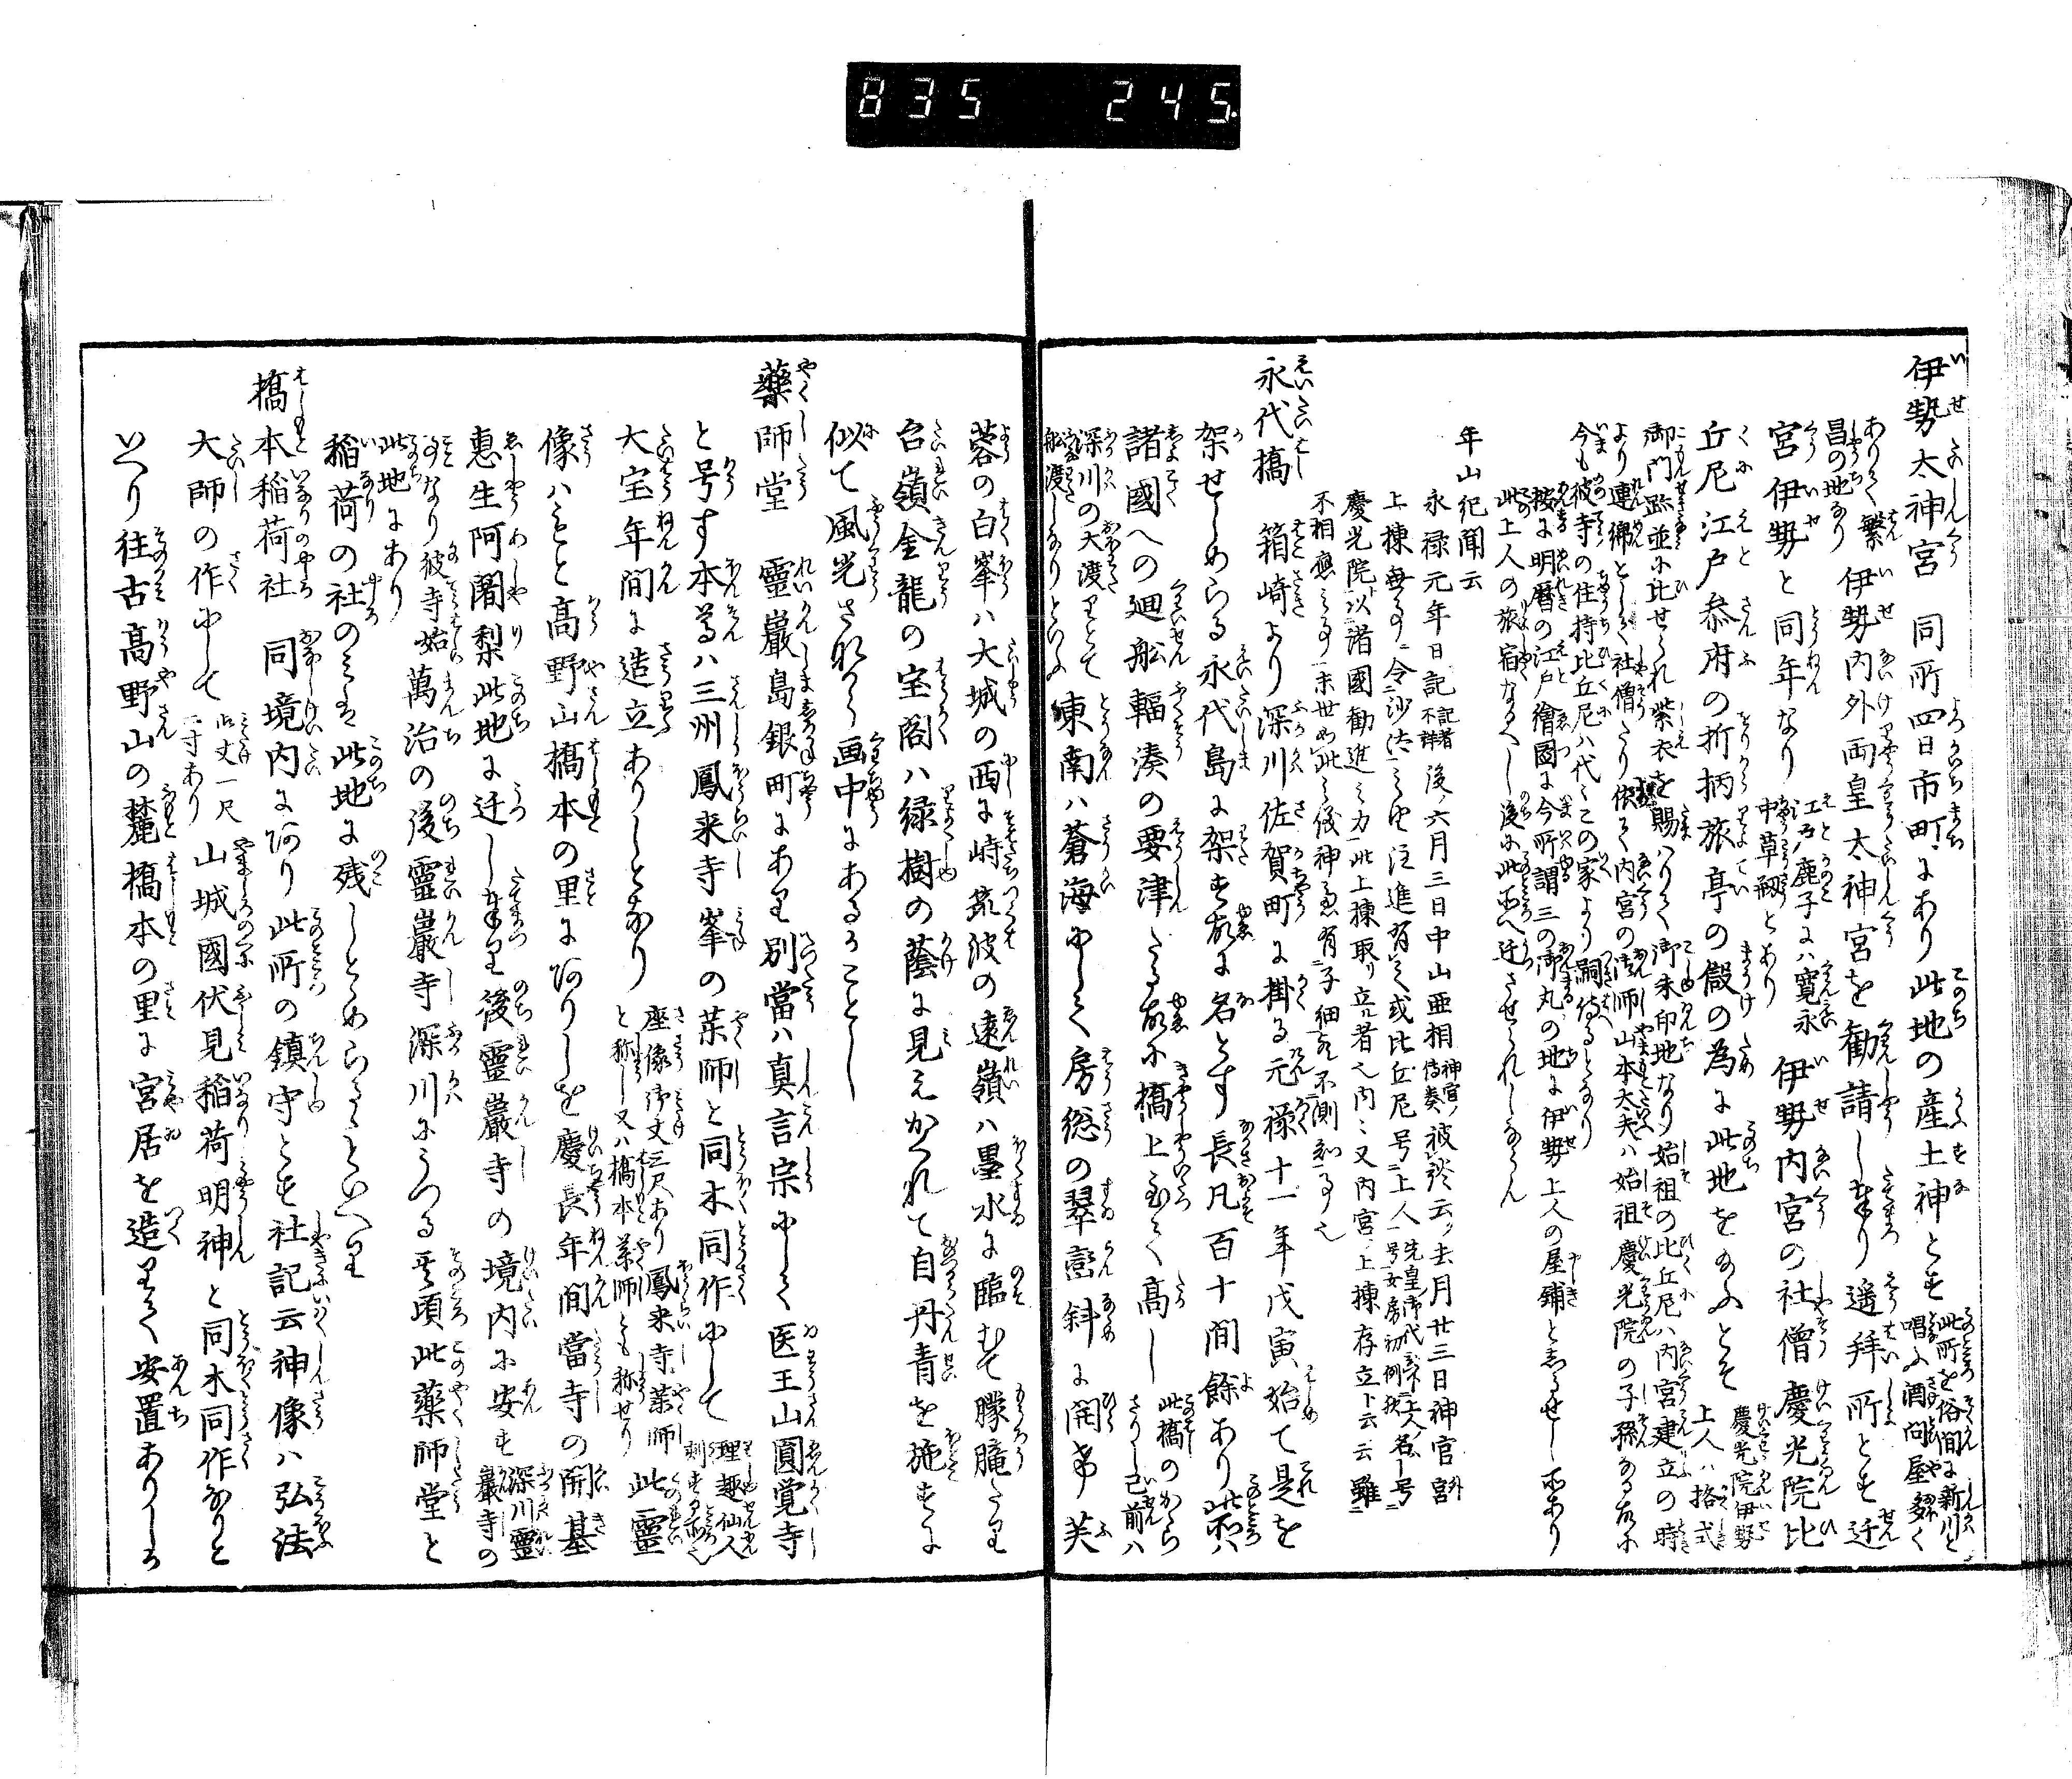 835 245.
伊勢太神宮 同所四日市町にあり此地の産土神とす 此所を俗間に新川と唱ふ酒問屋多く
ありて繁昌の地なり 伊勢内外両皇太神宮を勧請し奉り遥拝所とす 迁
宮伊勢と同年なり 江戸鹿子には寛永中草創とあり 伊勢内宮の社僧慶光院比
丘尼江戸参府の折柄旅亭の儲の為に此地を給ふとそ 慶光院伊勢上人は格式
御門跡並に比せられ紫衣を賜はりて御朱印地なり始祖の比丘尼は内宮建立の時
より連綿として社僧たり依て内宮の御師山本大夫は始祖慶光院の子孫なる故に
今も彼寺の住持比丘尼は代々この家より嗣侍るとなり
按に明暦の江戸繪圖に今所謂三の御丸の地に伊勢上人の屋鋪としるせし所あり
此上人の旅宿なるへし後に此所へ迁させられしならん
年山紀聞云
永禄元年日記 記者不詳 後六月三日中山亜相 神宮傳奏 被談云去月廿三日神官 外宮
上棟無事令沙汰之由注進有之或比丘尼号上人
慶光院以諸國勧進之力此上棟取り立る者也内々又内宮上棟存立ト云云雖
不相應之事末世如此之儀神慮有子細哉不測知事也
永代橋 箱崎より深川佐賀町に掛る元禄十一年戊寅始て是を
架せしめらる永代島に架す故に名とす長凡百十間餘あり此所は
諸國への廻船輻湊の要津たる故に橋上至て高し 此橋のかゝらさりし已前は
深川の大渡りとて舩渡しなりといふ 東南は蒼海にして房総の翠巒斜に開け芙
蓉の白峯は大城の西に峙筑波の遠嶺は墨水に臨むて朦朧たり
台嶺金龍の宝閣は緑樹の蔭に見えかくれて自丹青を施すに
似て風光さなから画中にあるかことし
藥師堂 靈巌島銀町にあり別當は真言宗にして医王山圓覚寺
と号す本尊は三州鳳来寺峯の薬師と同木同作にして 理趣仙人刻する所也
大宝年間に造立ありしとなり 座像御丈三尺あり鳳来寺薬師と称し又は橋本薬師とも称せり 此靈
像はもと高野山橋本の里にありしを慶長年間當寺の開基
恵生阿闍梨此地に迁し奉り後靈巌寺の境内に安す 深川靈巌寺の
事なり彼寺始此地にあり 萬治の後靈巌寺深川にうつる其頃此藥師堂と
稲荷の社のミは此地に残しとめらるゝといへり
橋本稲荷社 同境内にあり此所の鎮守とす社記云神像は弘法
大師の作にして 御丈一尺二寸あり 山城國伏見稲荷明神と同木同作なりと
いへり往古高野山の麓橋本の里に宮居を造りて安置ありしを